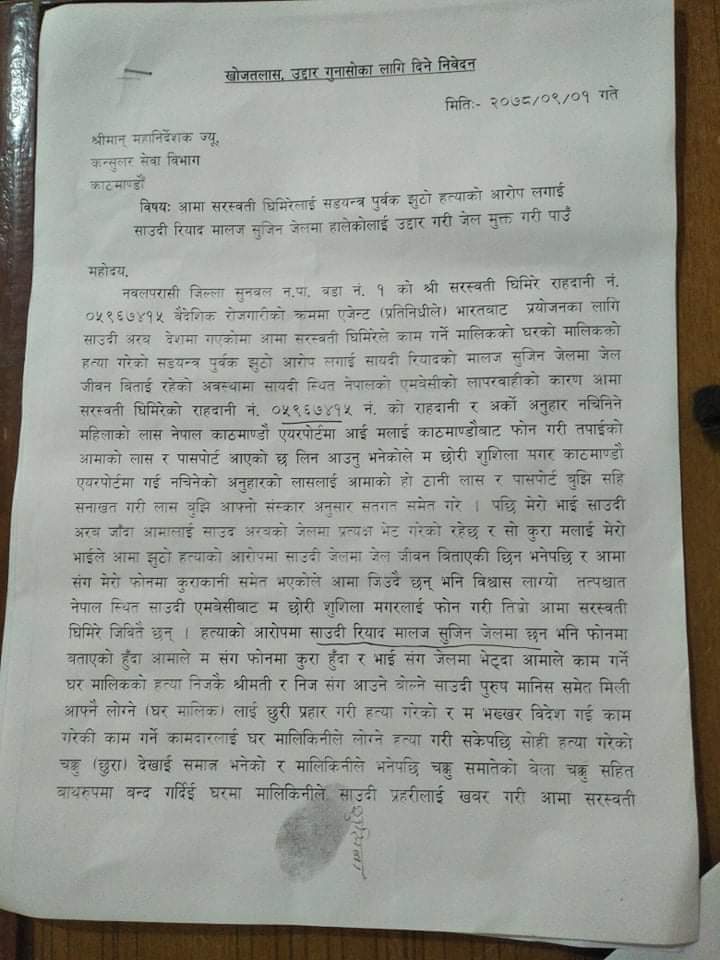 खोजतलास, उद्दार गुनासोका लागि दिने निवेदन
मितिः- २०७८/०९/०१ गते
श्रीमान् महानिर्देशक ज्यू,
कन्सुलर सेवा विभाग
काठमाण्डौं
विषयः आमा सरस्वती घिमिरेलाई सडयन्त्र पुर्वक झुठो हत्याको आरोप लगाई
साउदी रियाद मालज सुजिन जेलमा हालेकोलाई उद्दार गरी जेल मुक्त गरी पाउँ
महोदय,
नवलपरासी जिल्ला सुनवल न.पा. वडा नं. १ को श्री सरस्वती घिमिरे राहदानी नं.
०५९६७४१५ बैदेशिक रोजगारीको क्रममा एजेन्ट (प्रतिनिधीले) भारतवाट प्रयोजनका लागि
साउदी अरब देशमा गएकोमा आमा सरस्वती घिमिरेले काम गर्ने मालिकको घरको मालिकको
हत्या गरेको सडयन्त्र पुर्वक झुठो आरोप लगाई सायदी रियादको मालज सुजिन जेलमा जेल
जीवन बिताई रहेको अवस्थामा सायदी स्थित नेपालको एमबेसीको लापरवाहीको कारण आमा
सरस्वती घिमिरेको राहदानी नं. ०५९६७४१५ नं. को राहदानी र अर्को अनुहार नचिनिने
महिलाको लास नेपाल काठमाण्डौं एयरपोर्टमा आई मलाई काठमाण्डौंबाट फोन गरी तपाईको
आमाको लास र पासपोर्ट आएको छ लिन आउनु भनेकोले म छोरी शुशिला मगर काठमाण्डौं
एयरपोर्टमा गई नचिनेको अनुहारको लासलाई आमाको हो ठानी लास र पासपोर्ट बुझि सहि
सनाखत गरी लास बुझि आफ्नो संस्कार अनुसार सतगत समेत गरे । पछि मेरो भाई साउदी
अरब जाँदा आमालाई साउद अरबको जेलमा प्रत्यक्ष भेट गरेको रहेछ र सो कुरा मलाई मेरो
भाईले आमा झुठो हत्याको आरोपमा साउदी जेलमा जेल जीवन बिताएकी छिन भनेपछि र आमा
संग मेरो फोनमा कुराकानी समेत भएकोले आमा जिउदै छन् भनि विश्वास लाग्यो तत्पश्चात
नेपाल स्थित साउदी एमबेसीबाट म छोरी शुशिला मगरलाई फोन गरी तिम्रो आमा सरस्वती
घिमिरे जिवितै छन् । हत्याको आरोपमा साउदी रियाद मालज सुजिन जेलमा छन भनि फोनमा
बताएको हुँदा आमाले म संग फोनमा कुरा हुँदा र भाई संग जेलमा भेट्दा आमाले काम गर्ने
घर मालिकको हत्या निजकै श्रीमती र निज संग आउने बोल्ने साउदी पुरुष मानिस समेत मिली
आफ्नै लोग्ने (घर मालिक) लाई छुरी प्रहार गरी हत्या गरेको र म भख्खर विदेश गई काम
गरेकी काम गर्ने कामदारलाई घर मालिकिनीले लोग्ने हत्या गरी सकेपछि सोही हत्या गरेको
चक्कु (छुरा) देखाई समात्न भनेको र मालिकिनीले भनेपछि चक्कु समातेको वेला चक्कु सहित
बाथरुपमा बन्द गर्दिई घरमा मालिकिनीले साउदी प्रहरीलाई खबर गरी आमा सरस्वती